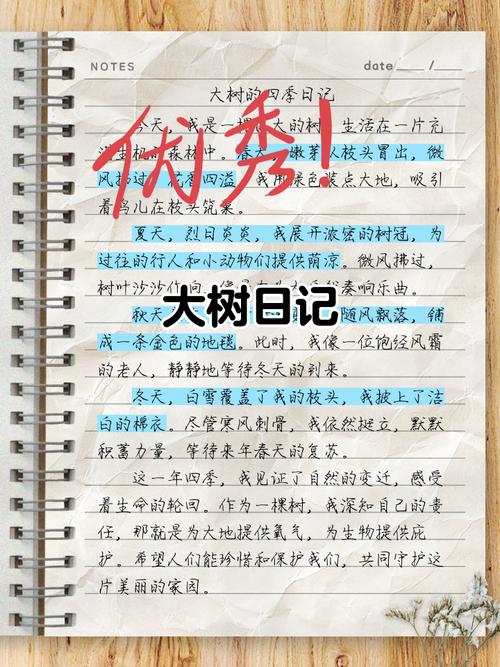 NOTES
date ___/___
大树的四季日记
今天，我是一棵 大的树 生活在一片充
机 森林中。春天，嫩芽从枝头冒出，微
风拂过，花香四溢，我用绿色装点大地，吸引
着鸟儿在枝头筑巢。
优秀！
夏天，烈日炎炎，我展开浓密的树冠，为
过往的行人和小动物们提供荫凉。微风拂过，
树叶沙沙作 奏响乐曲。
大树日记
秋天 随风飘落，铺
成一条金色的地毯。此时，我像一位饱经风霜
的老人，静静地等待冬天的到来。
冬天，白雪覆盖了我的枝头，我披上了洁
白的棉衣。尽管寒风刺骨，我依然挺立，默默
积蓄力量，等待来年春天的复苏。
这一年四季，我见证了自然的变迁，感受
着生命的轮回。作为一棵树，我深知自己的责
任，那就是为大地提供氧气，为生物提供庇
护。希望人们能珍惜和保护我们，共同守护这
片美丽的家园。